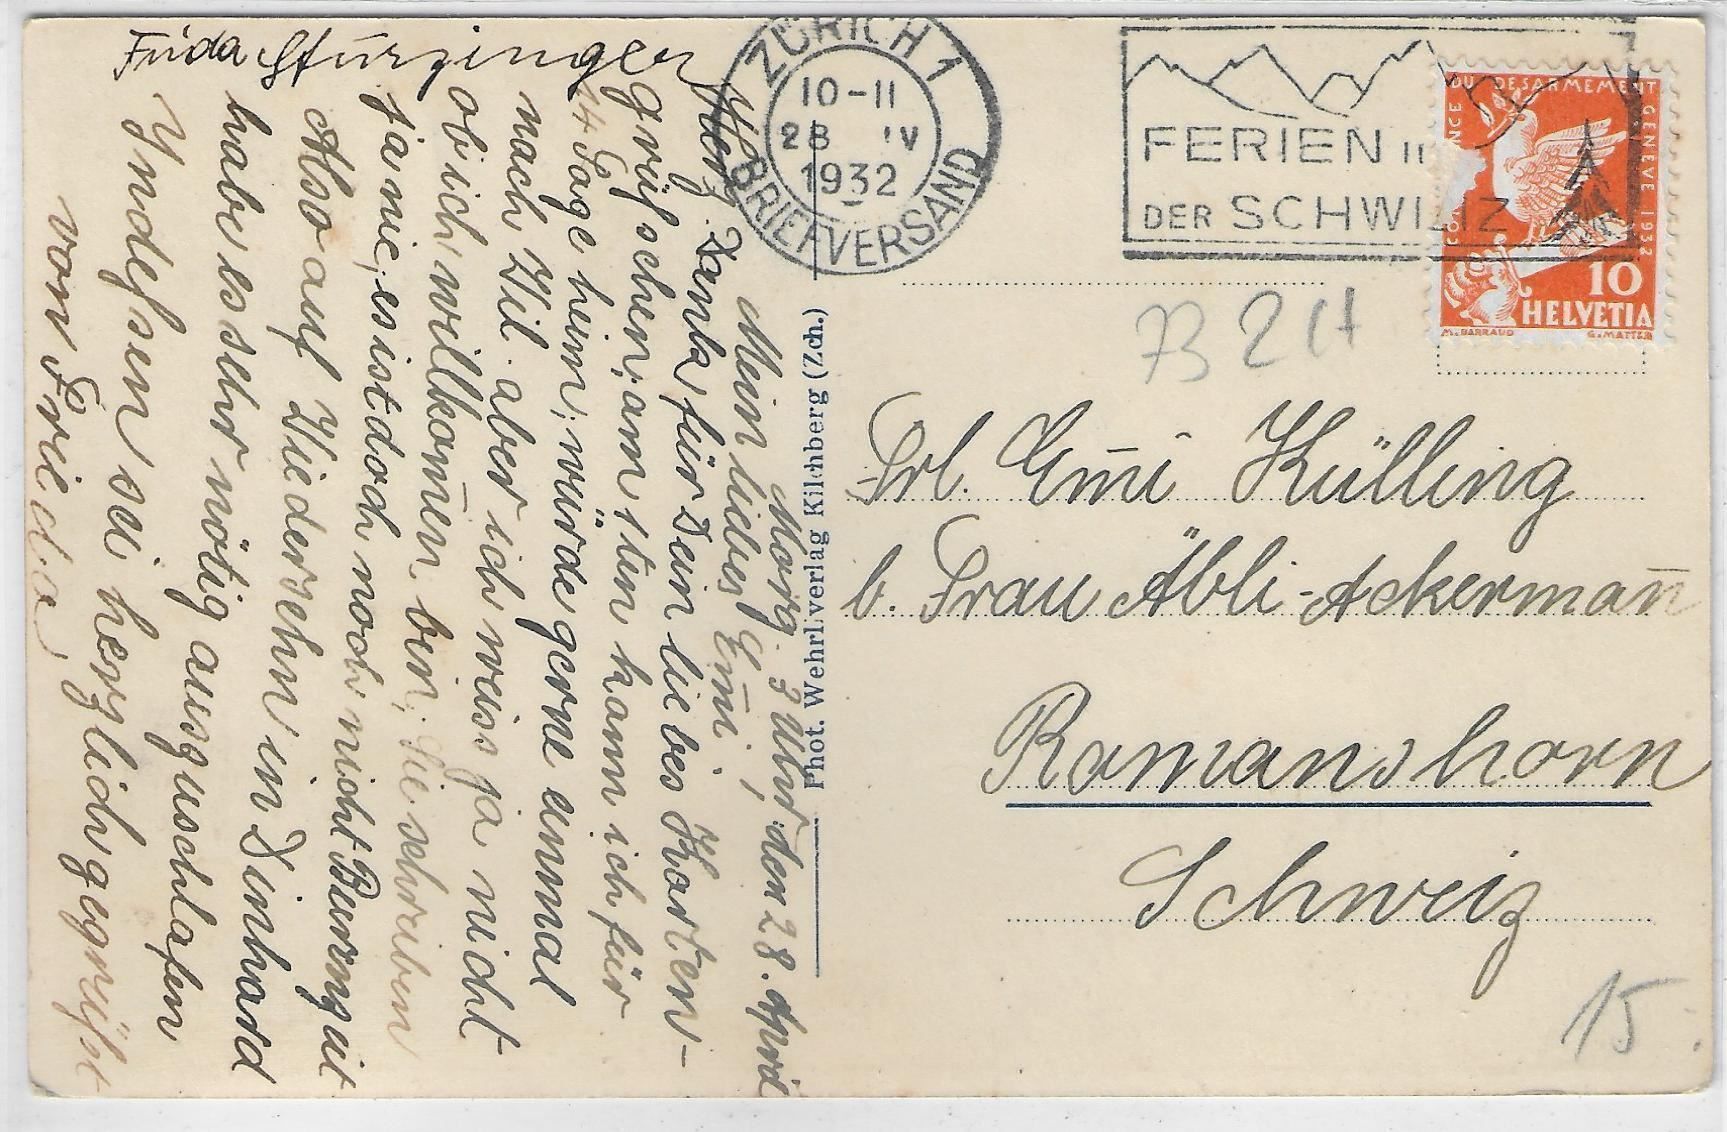 Frida Sturzinger
Morg. 3 Uhr, den 28. April
Mein liebes Em̅i,
Herz. Dank für Dein liebes Karten-
grüsschen, am 1ten kann ich für
14 Tage heim, würde gerne einmal
nach Wil aber ich weiss ja nicht
ob ich willkom̅en bin, Sie schreiben
ja nie, es ist doch noch nicht
Also auf Wiedersehn in Dinhard
habe es sehr nötig auszuschlafen
Indessen sei herzlich gegrüsst
von Frieda,
Phot. Wehrliverlag Kilchberg (Zch.)
ZÜRICH 1
10-11
28 IV
1932
BRIEFVERSAND
FERIEN in
DER SCHWEIZ
CONFÉRENCE DU DESARMEMENT GENÈVE 1932
10
HELVETIA
M. BARRAUD G. MATTER
Frl. Em̅i Külling
b. Frau Äbli-Ackerman̅
Romanshorn
Schweiz
15